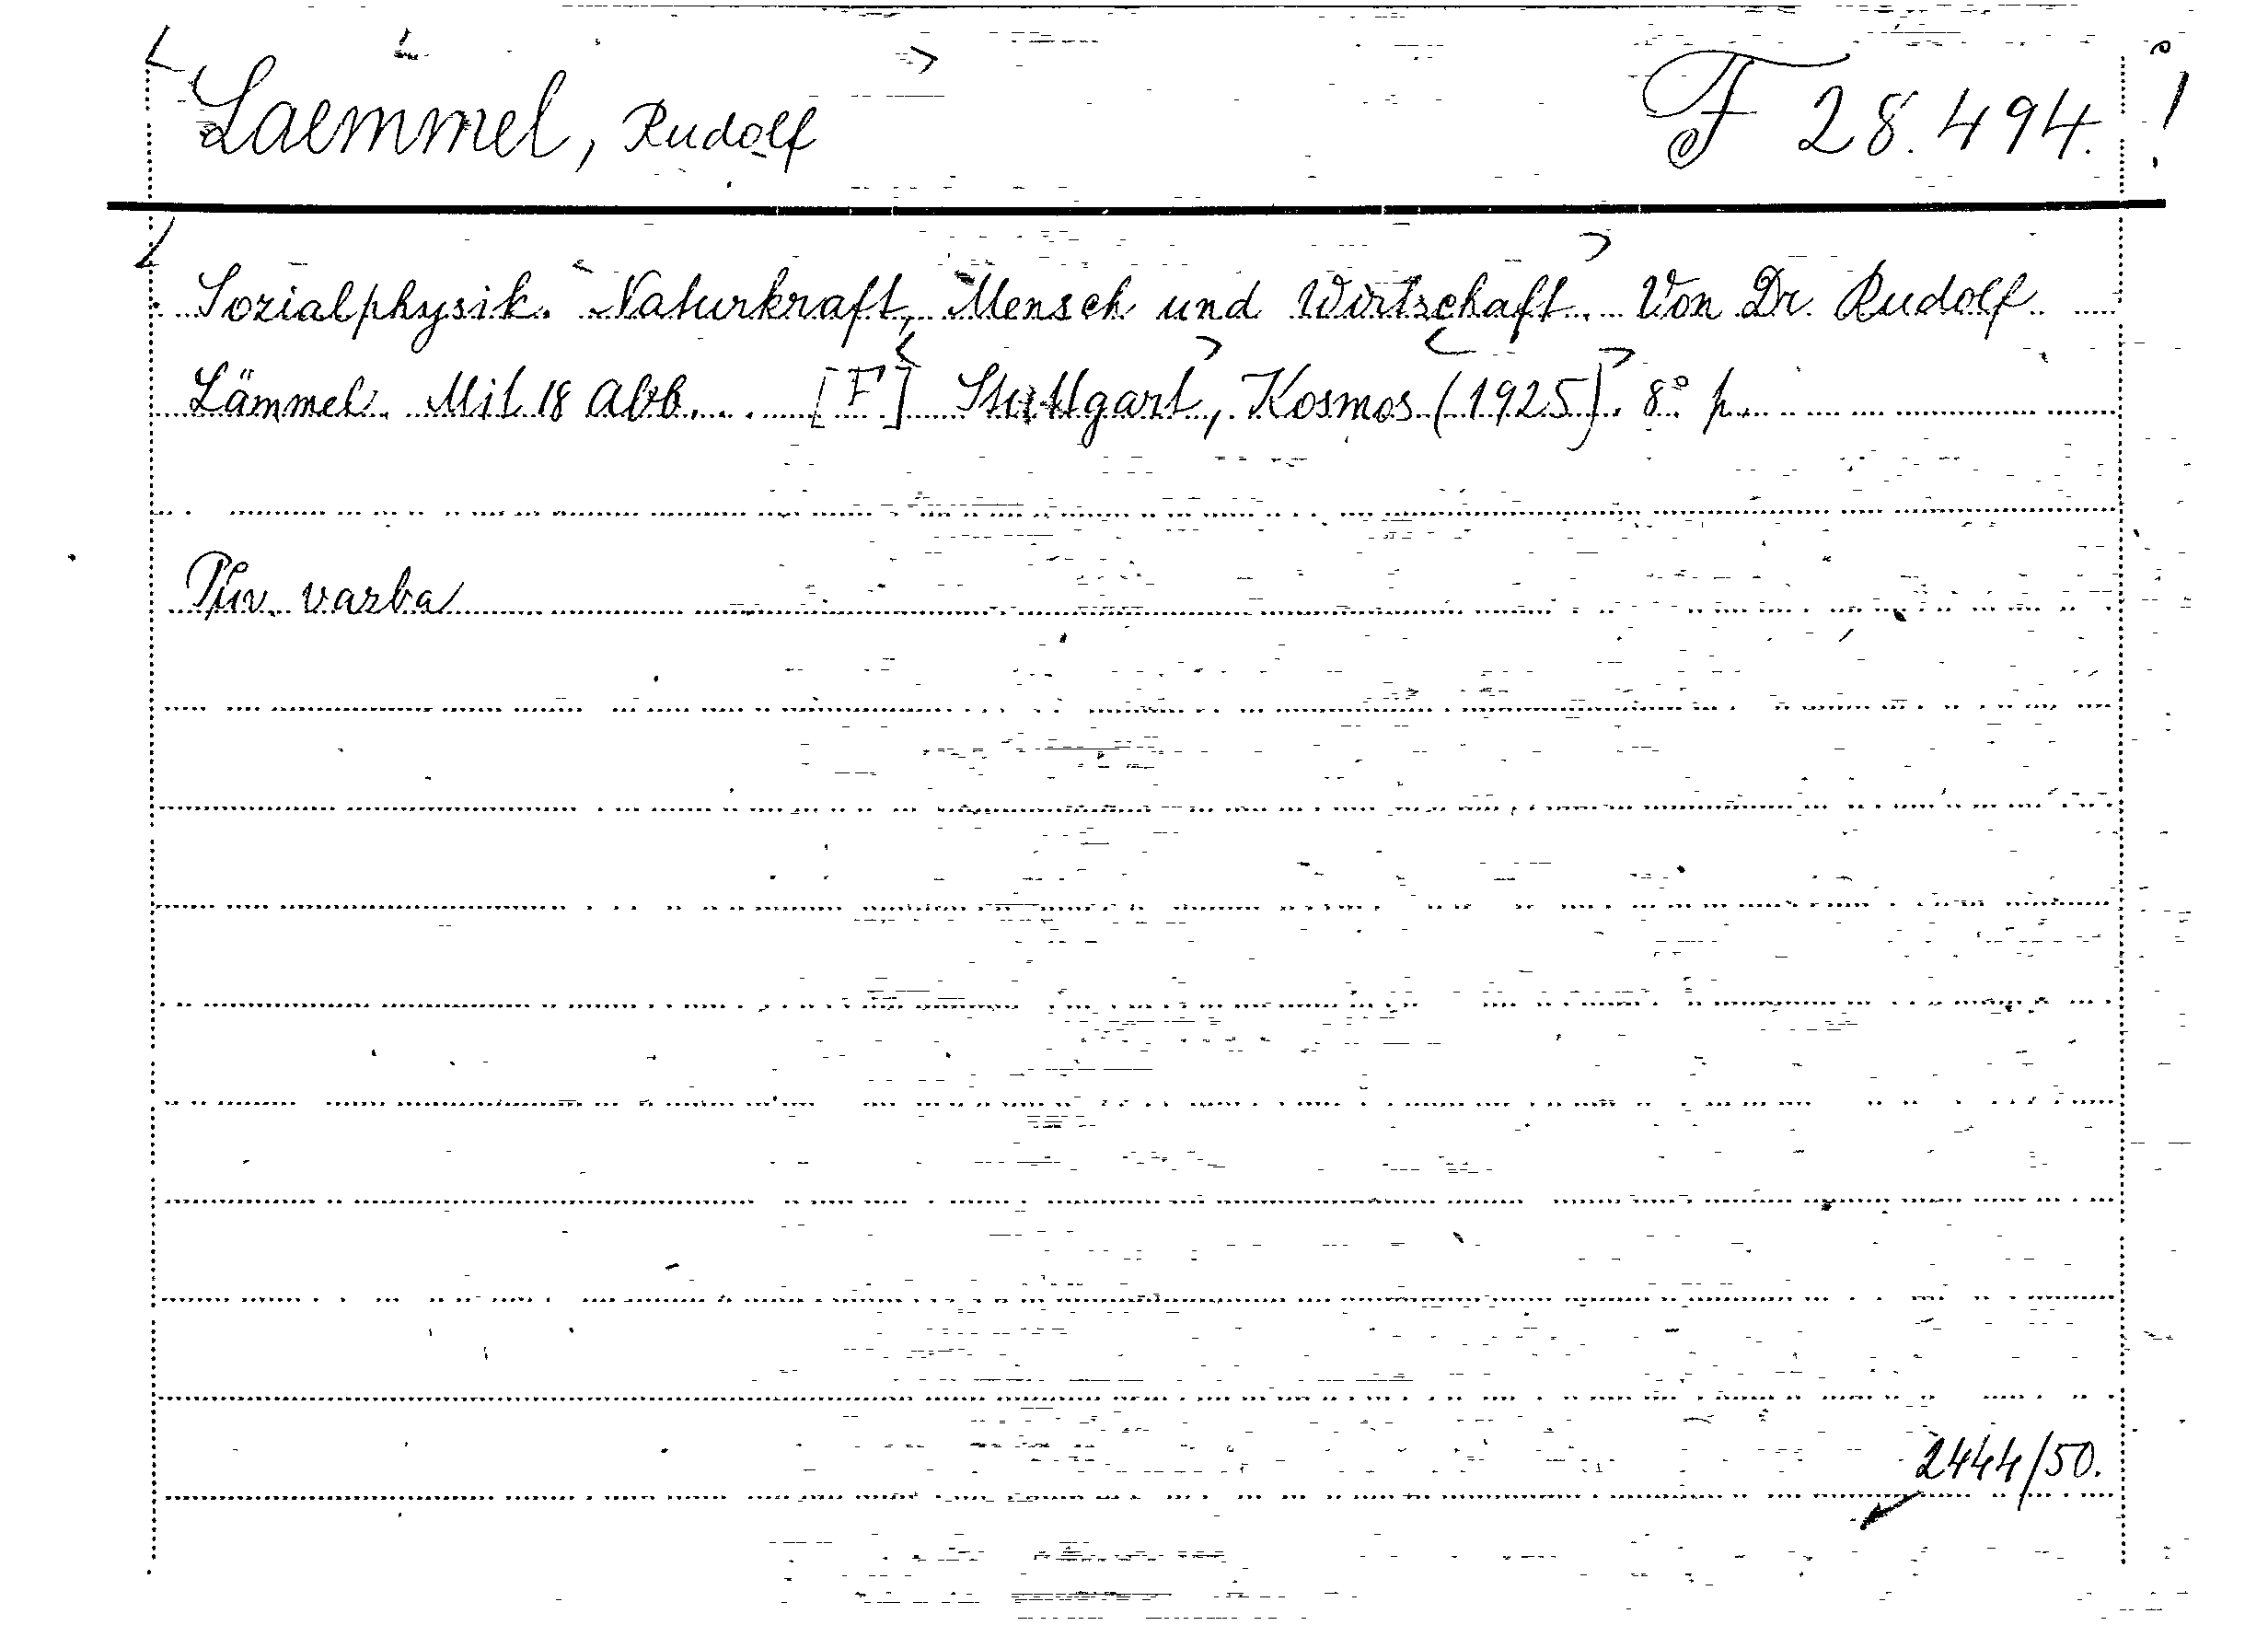 Laemmel, Rudolf F 28.494. !
Sozialphysik. Naturkraft, Mensch und Wirtschaft. Von Dr. Rudolf
Lämmel. Mit 18 Abb. . . [F] Stuttgart, Kosmos (1925). 8° p.
Fűv. varba
2444/50.